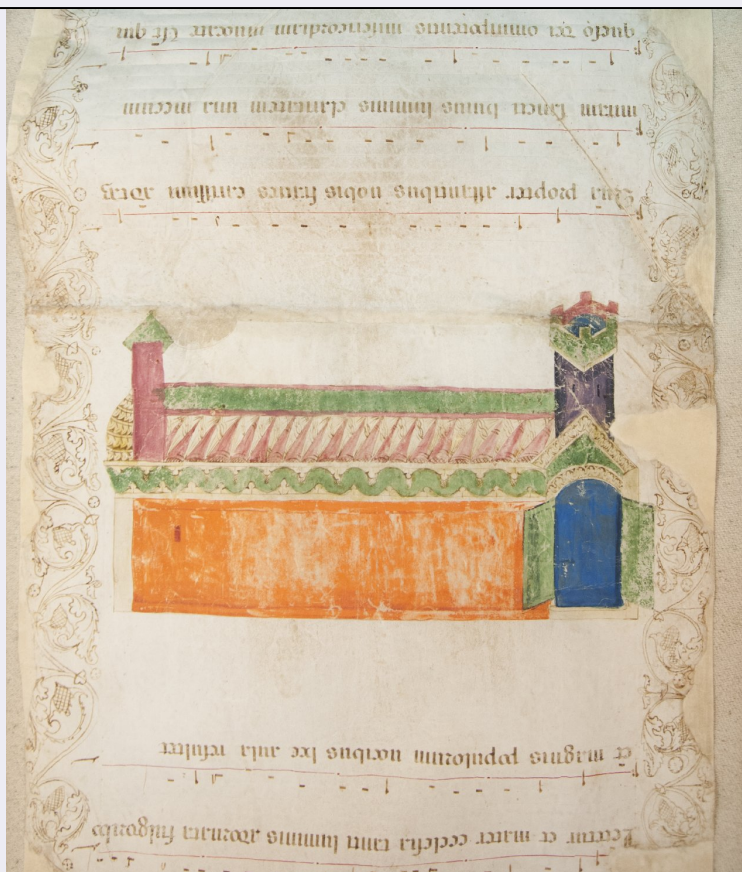 Letetur et mater ecclesia tanti luminis adornata fulgorib
et magnis populorum uocibus hec aula resultet
Qua propter astantibus uobis fratres carissimi
miram sancti huius luminis claritatem una mecum
queso dei omnipotentis misericordiam inuocate Ut qui